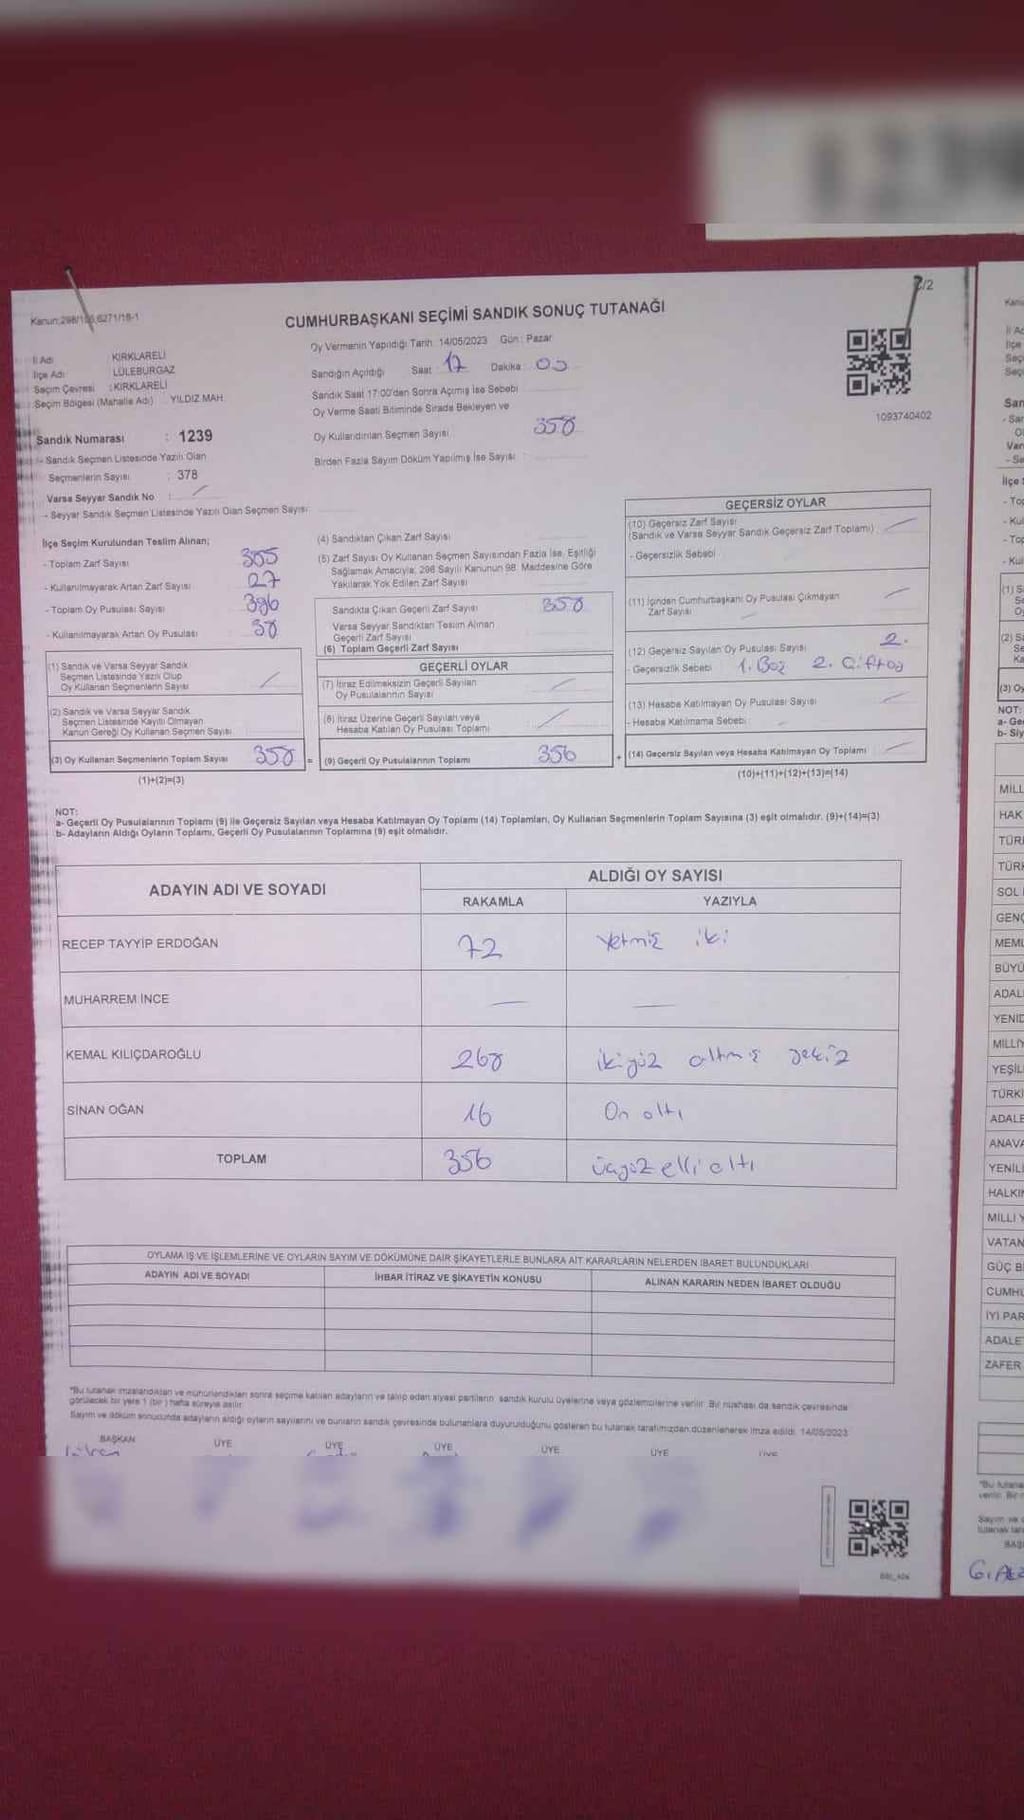 2/2
Kanun:298/105,6271/18-1
CUMHURBAŞKANI SEÇİMİ SANDIK SONUÇ TUTANAĞI
İl Adı KIRKLARELİ
İlçe Adı LÜLEBURGAZ
Seçim Çevresi : KIRKLARELİ
Seçim Bölgesi (Mahalle Adı) YILDIZ MAH.
Oy Vermenin Yapıldığı Tarih: 14/05/2023 Gün: Pazar
Sandığın Açıldığı Saat 17 Dakika 05
Sandık Saat 17:00'den Sonra Açılmış İse Sebebi
Oy Verme Saati Bitiminde Sırada Bekleyen ve
Oy Kullandırılan Seçmen Sayısı 358
Birden Fazla Sayım Döküm Yapılmış İse Sayısı
1093740402
Sandık Numarası : 1239
- Sandık Seçmen Listesinde Yazılı Olan
Seçmenlerin Sayısı : 378
Varsa Seyyar Sandık No :
- Seyyar Sandık Seçmen Listesinde Yazılı Olan Seçmen Sayısı
İlçe Seçim Kurulundan Teslim Alınan;
- Toplam Zarf Sayısı
- Kullanılmayarak Artan Zarf Sayısı 27
- Toplam Oy Pusulası Sayısı 396
- Kullanılmayarak Artan Oy Pusulası 38
(1) Sandık ve Varsa Seyyar Sandık
Seçmen Listesinde Yazılı Olup
Oy Kullanan Seçmenlerin Sayısı
(2) Sandık ve Varsa Seyyar Sandık
Seçmen Listesinde Kayıtlı Olmayan
Kanun Gereği Oy Kullanan Seçmen Sayısı
(3) Oy Kullanan Seçmenlerin Toplam Sayısı 358 =
(1)+(2)=(3)
(4) Sandıktan Çıkan Zarf Sayısı
(5) Zarf Sayısı Oy Kullanan Seçmen Sayısından Fazla İse, Eşitliği
Sağlamak Amacıyla, 298 Sayılı Kanunun 98. Maddesine Göre
Yakılarak Yok Edilen Zarf Sayısı
Sandıkta Çıkan Geçerli Zarf Sayısı 358
Varsa Seyyar Sandıktan Teslim Alınan
Geçerli Zarf Sayısı
(6) Toplam Geçerli Zarf Sayısı
GEÇERLİ OYLAR
(7) İtiraz Edilmeksizin Geçerli Sayılan
Oy Pusulalarının Sayısı
(8) İtiraz Üzerine Geçerli Sayılan veya
Hesaba Katılan Oy Pusulası Toplamı
(9) Geçerli Oy Pusulalarının Toplamı 356 +
GEÇERSİZ OYLAR
(10) Geçersiz Zarf Sayısı
(Sandık ve Varsa Seyyar Sandık Geçersiz Zarf Toplamı)
- Geçersizlik Sebebi
(11) İçinden Cumhurbaşkanı Oy Pusulası Çıkmayan
Zarf Sayısı
(12) Geçersiz Sayılan Oy Pusulası Sayısı 2.
- Geçersizlik Sebebi 1. Boş 2. Çift oy
(13) Hesaba Katılmayan Oy Pusulası Sayısı
- Hesaba Katılmama Sebebi
(14) Geçersiz Sayılan veya Hesaba Katılmayan Oy Toplamı
(10)+(11)+(12)+(13)=(14)
NOT:
a- Geçerli Oy Pusulalarının Toplamı (9) ile Geçersiz Sayılan veya Hesaba Katılmayan Oy Toplamı (14) Toplamları, Oy Kullanan Seçmenlerin Toplam Sayısına (3) eşit olmalıdır. (9)+(14)=(3)
b- Adayların Aldığı Oyların Toplamı, Geçerli Oy Pusulalarının Toplamına (9) eşit olmalıdır.
ADAYIN ADI VE SOYADI ALDIĞI OY SAYISI
RAKAMLA YAZIYLA
RECEP TAYYİP ERDOĞAN 72 Yetmiş iki
MUHARREM İNCE — —
KEMAL KILIÇDAROĞLU 268 ikiyüz altmış sekiz
SİNAN OĞAN 16 On altı
TOPLAM 356 üçyüz elli altı
OYLAMA İŞ VE İŞLEMLERİNE VE OYLARIN SAYIM VE DÖKÜMÜNE DAİR ŞİKAYETLERLE BUNLARA AİT KARARLARIN NELERDEN İBARET BULUNDUKLARI
ADAYIN ADI VE SOYADI İHBAR İTİRAZ VE ŞİKAYETİN KONUSU ALINAN KARARIN NEDEN İBARET OLDUĞU
*Bu tutanak imzalandıktan ve mühürlendikten sonra seçime katılan adayların ve talep eden siyasi partilerin sandık kurulu üyelerine veya gözlemcilerine verilir. Bir nüshası da sandık çevresinde
görülecek bir yere 1 (bir) hafta süreyle asılır.
Sayım ve döküm sonucunda adayların aldığı oyların sayılarını ve bunların sandık çevresinde bulunanlara duyurulduğunu gösteren bu tutanak tarafımızdan düzenlenerek imza edildi. 14/05/2023
BAŞKAN ÜYE ÜYE ÜYE ÜYE ÜYE ÜYE
MİLL
HAK
TÜR
TÜRK
SOL
GENÇ
MEML
BÜYÜ
ADAL
YENİD
MİLLİY
YEŞİL
TÜRKİ
ADALE
ANAVA
YENİL
HALKI
MİLLİ Y
VATAN
GÜÇ Bİ
CUMHU
İYİ PAR
ADALET
ZAFER